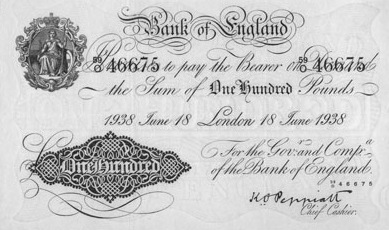 Bank of England
I Promise to pay the Bearer on Demand
59/O 46675 59/O 46675
the Sum of One Hundred Pounds
1938 June 18 London 18 June 1938
For the Govr. and Compa.
of the Bank of England.
One Hundred
59/O 46675
K O Peppiatt
Chief Cashier.